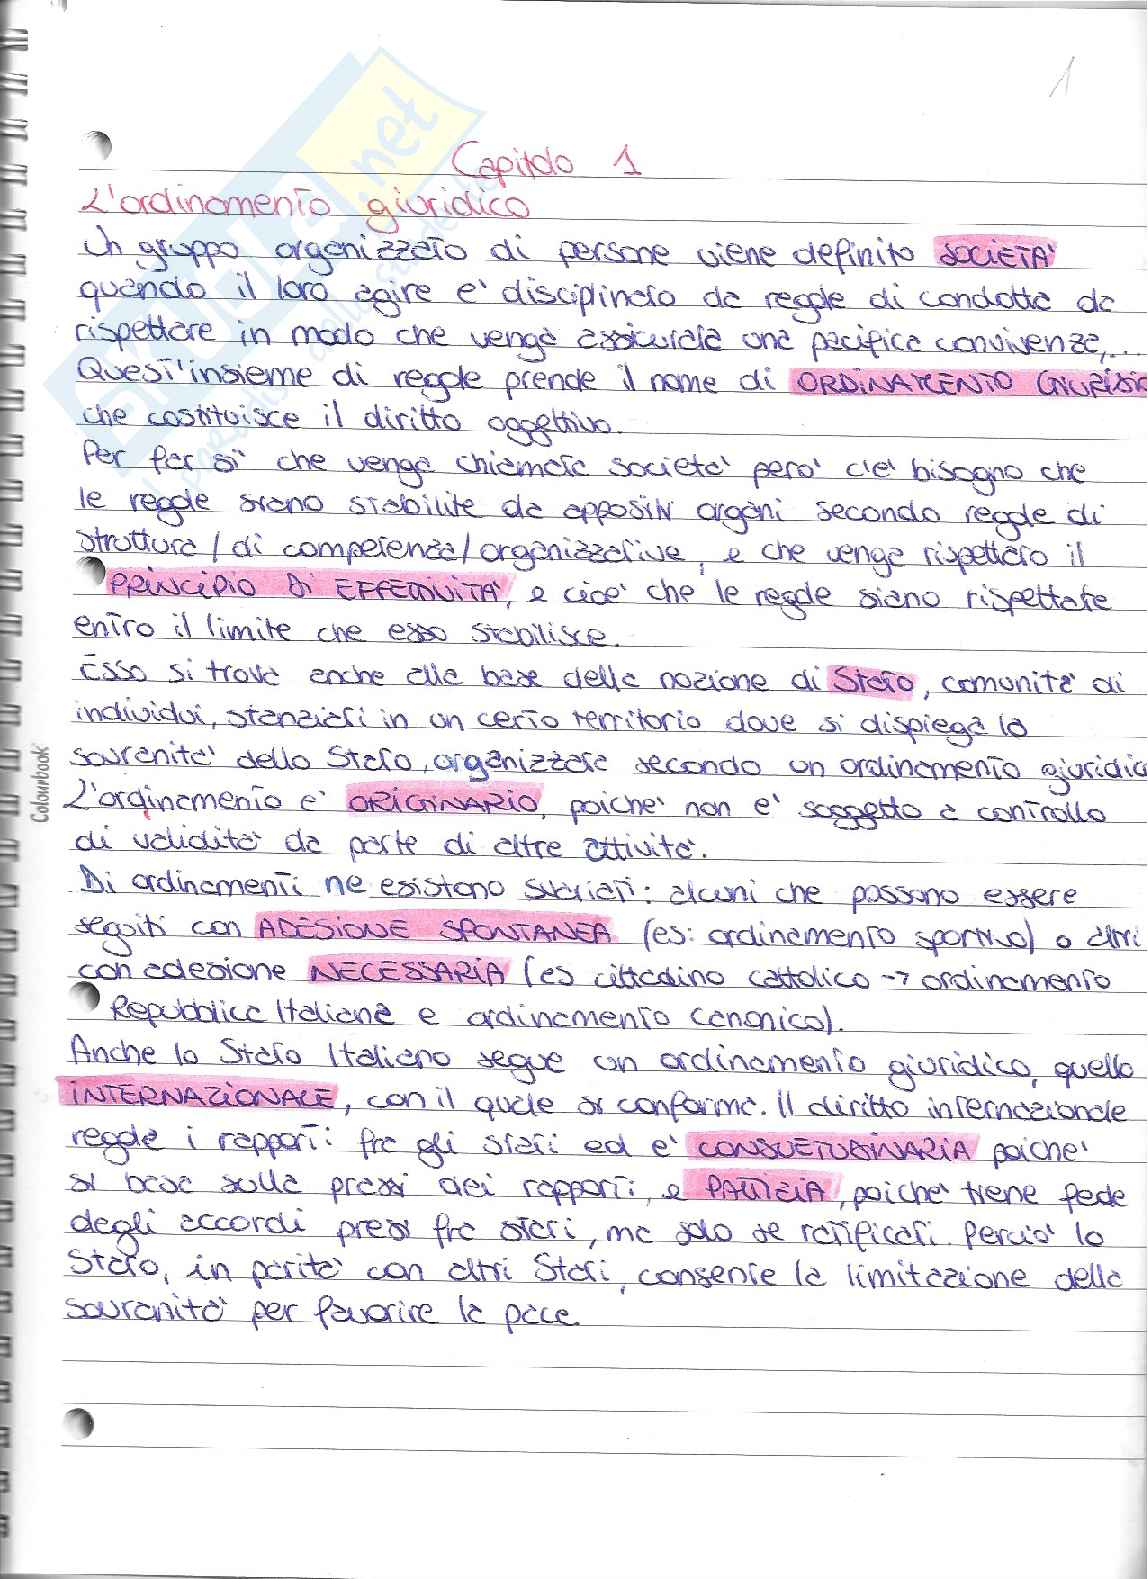 1
Capitolo 1
L'ordinamento giuridico
Un gruppo organizzato di persone viene definito SOCIETA'
quando il loro agire e' disciplinato da regole di condotta da
rispettare in modo che venga assicurata una pacifica convivenza,...
Quest'insieme di regole prende il nome di ORDINAMENTO GIURIDIC
che costituisce il diritto oggettivo.
Per far si' che venga chiamata societa' pero' c'e' bisogno che
le regole siano stabilite da appositi organi secondo regole di
struttura/di competenza/organizzative, e che venga rispettato il
PRINCIPIO DI EFFETTIVITA', e cioe' che le regole siano rispettate
entro il limite che esso stabilisce.
Esso si trova anche alla base della nozione di Stato, comunita' di
individui, stanziati in un certo territorio dove si dispiega la
sovranita' dello Stato, organizzata secondo un ordinamento giuridic
L'ordinamento e' ORIGINARIO, poiche' non e' soggetto a controllo
di validita' da parte di altre attivita'.
Di ordinamenti ne esistono svariati: alcuni che possono essere
seguiti con ADESIONE SPONTANEA (es: ordinamento sportivo) o altri
con adesione NECESSARIA (es cittadino cattolico → ordinamento
Repubblica Italiana e ordinamento canonico).
Anche lo Stato Italiano segue un ordinamento giuridico, quello
INTERNAZIONALE, con il quale si conforma. Il diritto internazionale
regola i rapporti fra gli stati ed e' CONSUETUDINARIA poiche'
si basa sulla prassi dei rapporti, e PATTIZIA, poiche' tiene fede
degli accordi presi fra stati, ma solo se ratificati. Percio' lo
Stato, in parita' con altri Stati, consente la limitazione della
sovranita' per favorire la pace.
Colourbook
SKUOLA.net